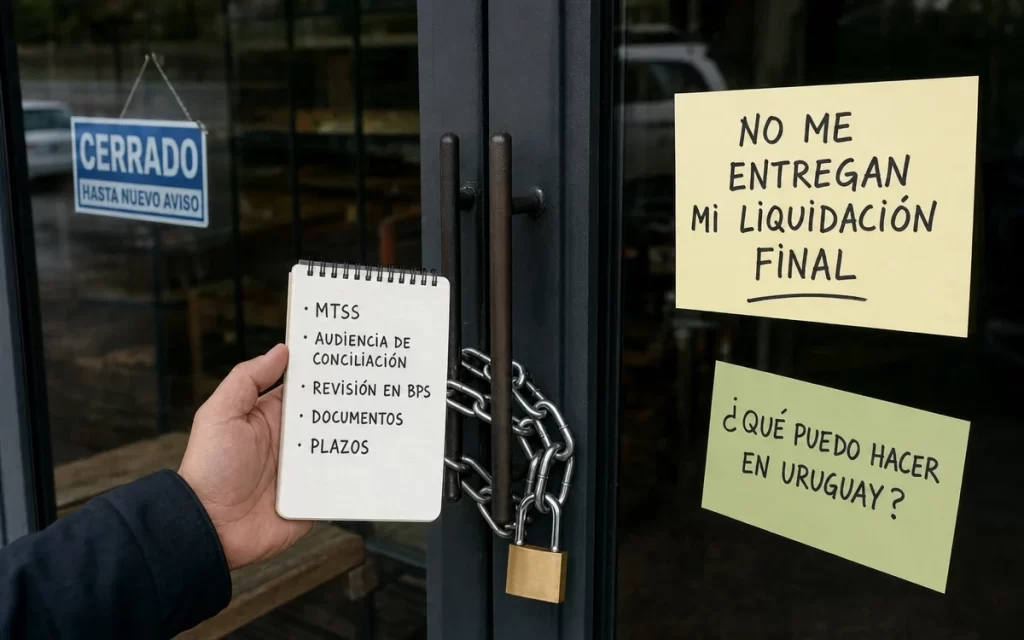 CERRADO
HASTA NUEVO AVISO
· MTSS
· AUDIENCIA DE
CONCILIACIÓN
· REVISIÓN EN BPS
· DOCUMENTOS
· PLAZOS
NO ME
ENTREGAN
MI LIQUIDACIÓN
FINAL
¿QUÉ PUEDO HACER
EN URUGUAY?